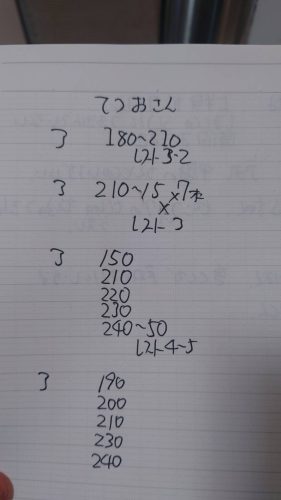 てつおさん
3 180~210
レスト3-2
3 210~15×7本
×
レスト3
3 150
210
220
230
240~50
レスト4~5
3 190
200
210
230
240